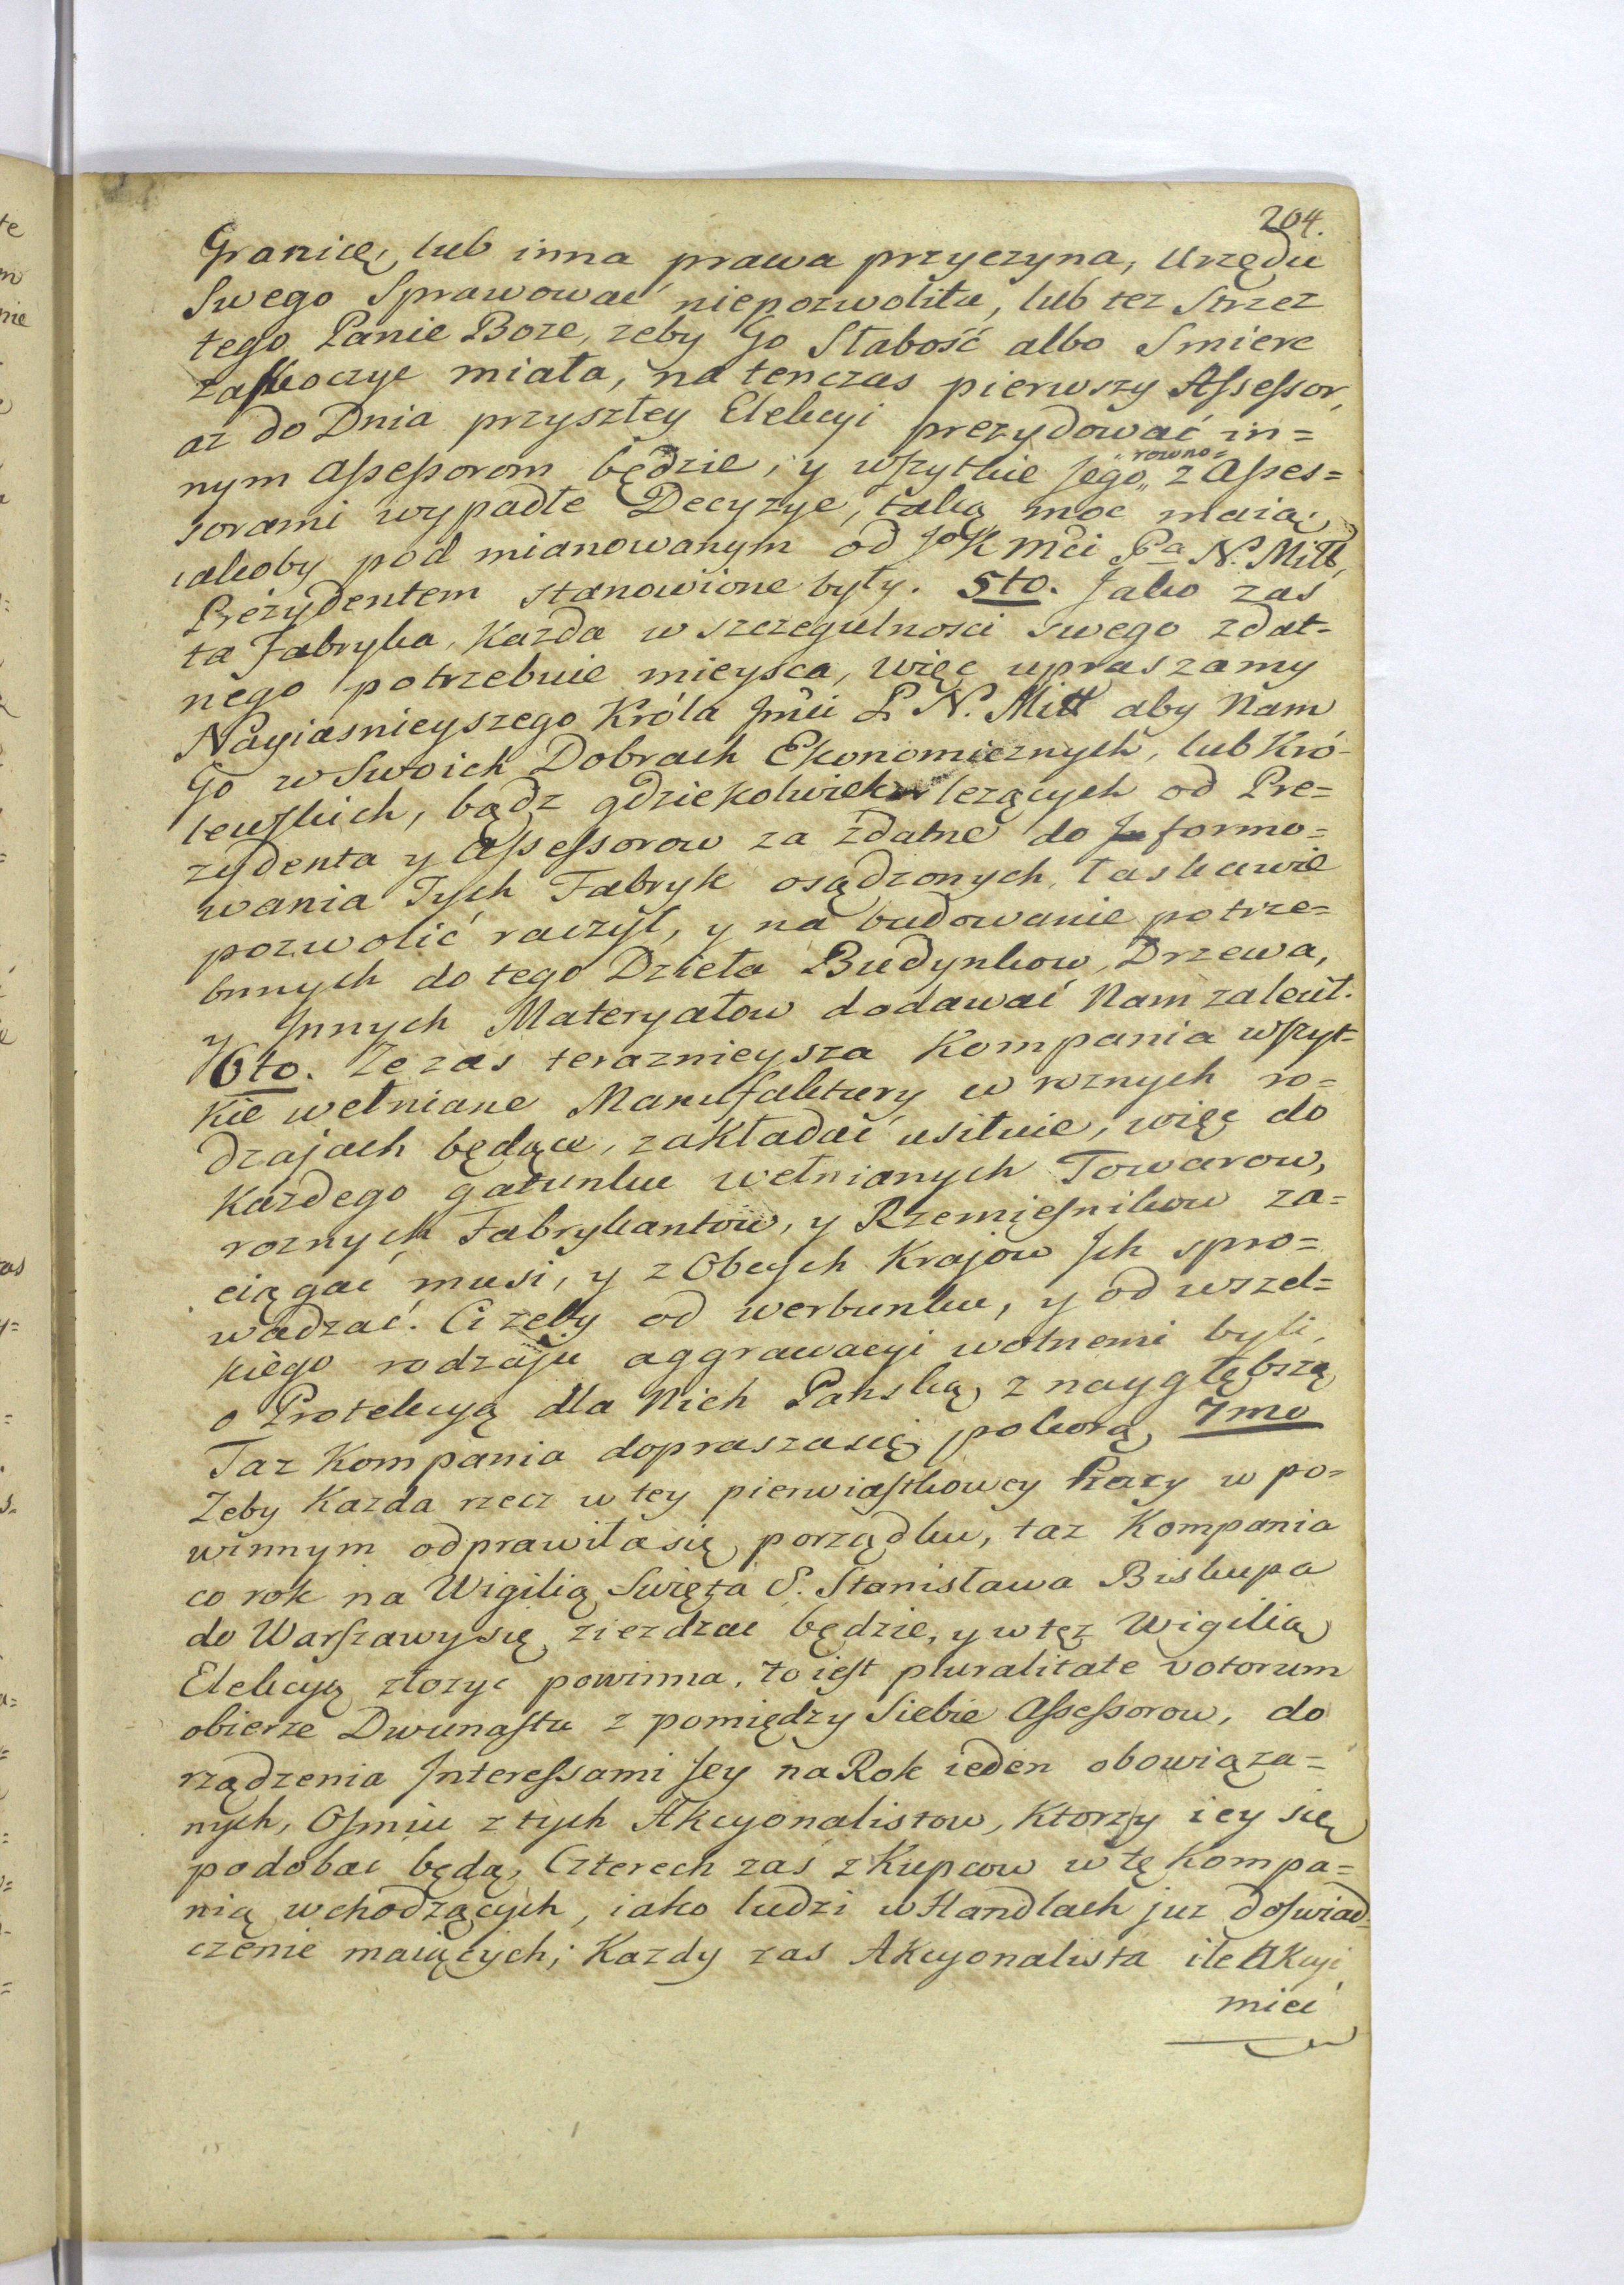 204.
Granicę, lub inna prawa przyczyna, Urzędu
Swego Sprawować niepozwoliła, lub tez Strzez
tego Panie Boze, zeby Go Słabość albo Smierc
zaskoczyc miała, na tenczas pierwszy Assessor,
az do Dnia przyszłey Elekcyi prezydować in=
nym Assessorom będzie, y wszytkie Jego „ rowno= z Asses=
sorami wypadłe Decyzye, taką moc maią,
iakoby pod mianowanym od JoKMći Pa N. Mitt,
Prezydentem stanowione były. 5to. Jako zas
ta Fabryka, Kazda w szczegulnosci swego zdat=
nego potrzebuie mieysca, więc upraszamy
Nayiasnieyszego Króla Jmći P. N. Mitt aby Nam
Go w Swoich Dobrach Ekonomicznych, lub Kró=
lewskich, bądz gdziekolwiek lezących od Pre=
zydenta y Assessorow za zdatne do formo=
wania Tych Fabryk osądzonych, łaskawie
pozwolić raczył, y na budowanie potrze=
bnych do tego Dzieła Budynkow, Drzewa,
y Jnnych Materyałow dodawać Nam zalecił.
6to. Ze zas teraznieysza Kompania wszyt=
kie wełniane Manufaktury w roznych ro=
dzajach będące, zakładać usiłuie, więc do
Kazdego gatunku wełnianych Towarow,
roznych Fabrykantow, y Rzemięsnikow za=
ciągać musi, y z Obcych Krajow Jch spro=
wadzać. Ci zeby od werbunku, y od wszel=
kiego rodzaju aggrawacyi wolnemi byli,
o Protekcyą dla Nich Panską, z naygłębszą
Taz Kompania dopraszasię pokorą, 7mo
Zeby Kazda rzecz w tey pierwiastkowey Pracy w po=
winnym odprawiła się porządku, taz Kompania
co rok na Wigilią Swięta S. Stanisława Biskupa
do Warszawy się ziezdzac będzie, y w tęz Wigilią
Elekcyą złozyc powinna, to iest pluralitate votorum
obierze Dwunastu z pomiędzy Siebie Assessorow, do
rządzenia Jnteressami Jey na Rok ieden obowiąza=
nych, Osmiu z tych Akcyonalistow, Ktorzy iey się
podobac będą, Czterech zaś z Kupcow w tę Kompa=
nią wchodzących, iako ludzi w Handlach juz doswiad=
czenie maiących; Kazdy zas Akcyonalista ile Akcyi
mieć